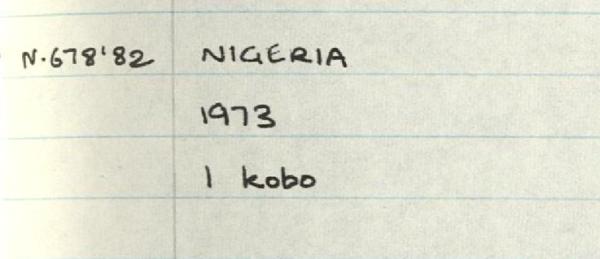 N.678'82 NIGERIA
1973
1 kobo